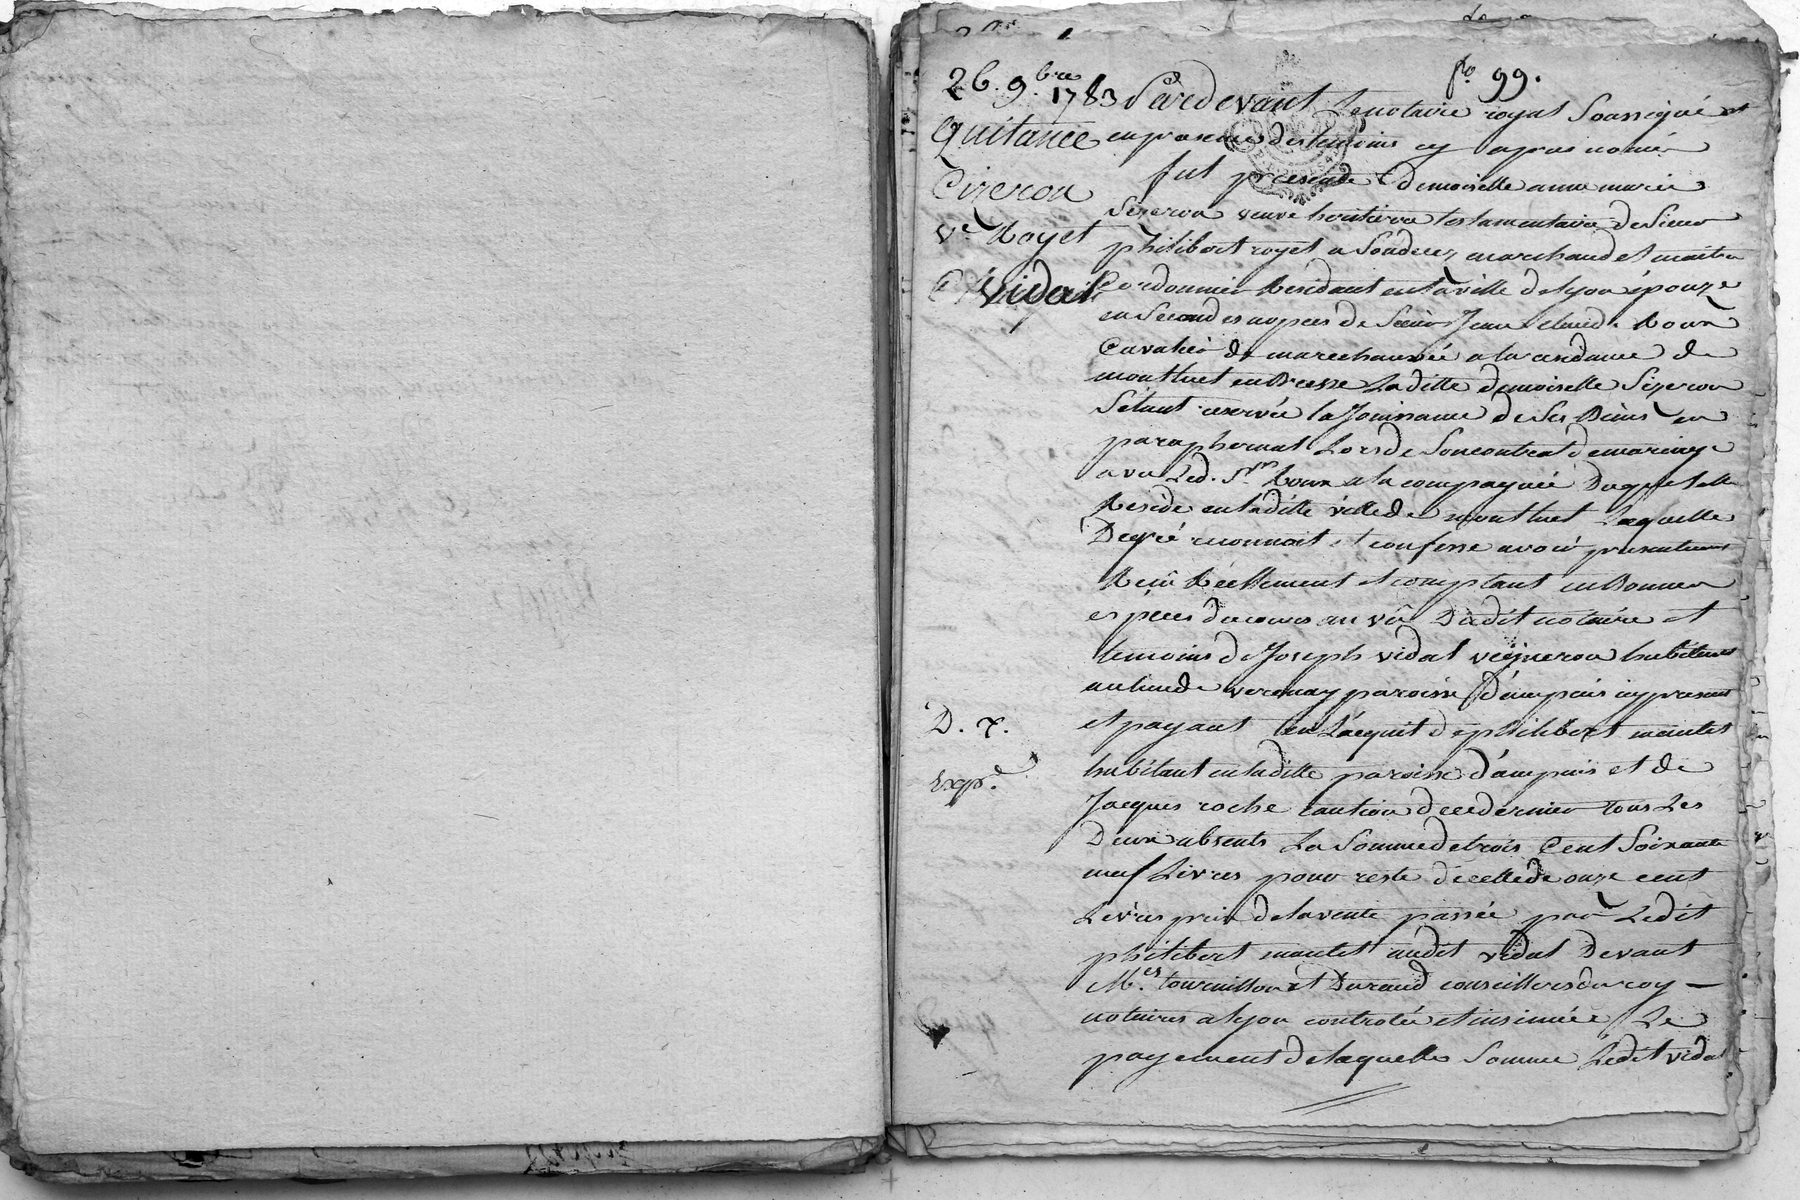 fo. 99.
26. 9.bre 1783
Quitance
Cizeron
Ve. Royet
Vidal
D. 7.
Exp.e
Pardevant Le notaire royal Soussigné et
en presence des temoins cy apres només
fut presente Demoiselle anne marie
Sizeron veuve heritiere testamentaire de Sieur
philibert royet marchand et maitre
Cordonnier Residant en la ville de lyon épouze
en Secondes nopces de Sieur Jean claude Roux
Cavalier de marechaussée a la residance de
montluel en Bresse Laditte demoiselle Sizeron
S'étant reservée la Jouissance de Ses Biens en
paraphernal Lors de Son contrat de mariage
avec Led. Sr. Roux a la compagnie Duquel elle
Reside en laditte ville de montluel Laquelle
De gré reconnoit et confesse avoir presentement
Reçû Réellement et comptant en Bonnes
espèces du cours au vû Dudit notaire et
temoins de Joseph vidal vigneron habitant
au lieu de verenay paroisse d'ampuis icy present
et payant en L'acquit de philibert mantet
habitant en laditte paroisse d'ampuis et de
Jacques roche caution de ce dernier tous Les
Deux absents La Somme de trois Cent Soixante
neuf Livres pour reste de celle de onze cent
Livres prix de la vente passée par Ledit
philibert mantet audit vidal Devant
Mes. tournillon et Durand conseillers du roy
notaires a lyon controlée et insinuée Le
payement de laquelle Somme Ledit vidal